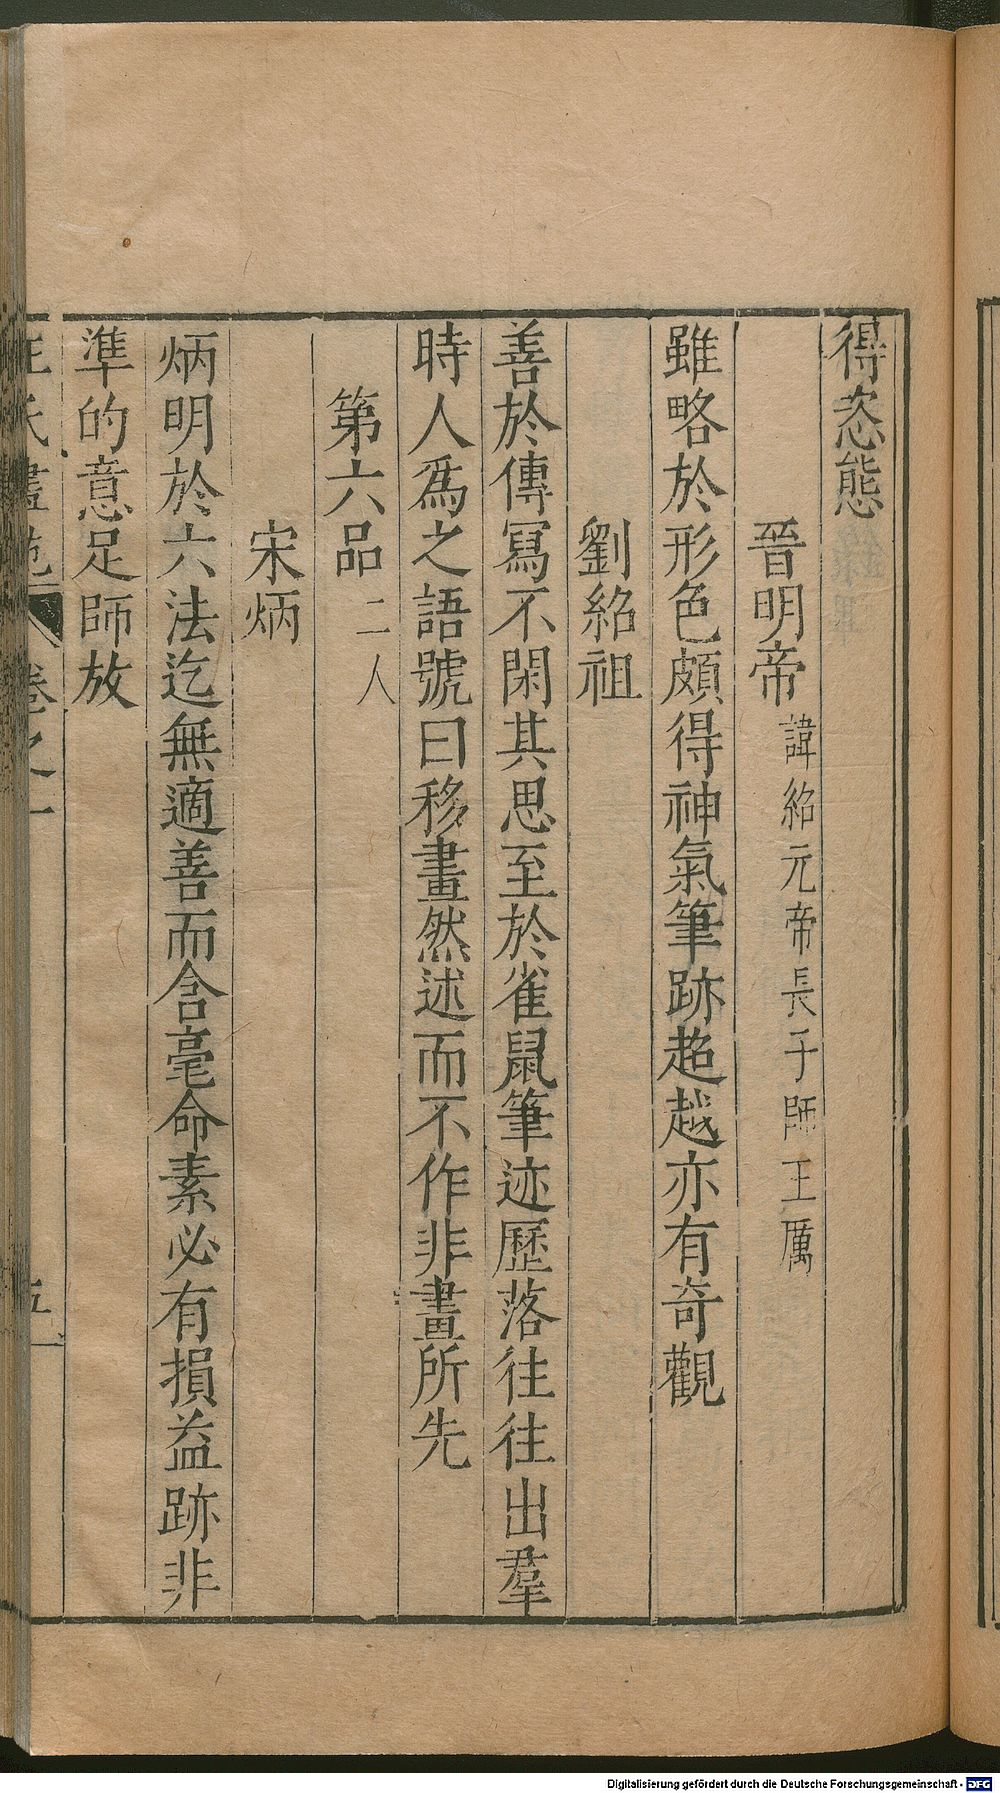 得恣態
晉明帝 諱紹元帝長子師王厲
雖略於形色頗得神氣筆跡超越亦有奇觀
劉紹祖
善於傳冩不閑其思至於雀鼠筆迹歷落往往出羣
時人爲之語號曰移畫然述而不作非畫所先
第六品 二人
宋炳
炳明於六法迄無適善而含毫命素必有損益跡非
準的意足師放
氏畫苑 卷之一 五
Digitalisierung gefördert durch die Deutsche Forschungsgemeinschaft - DFG